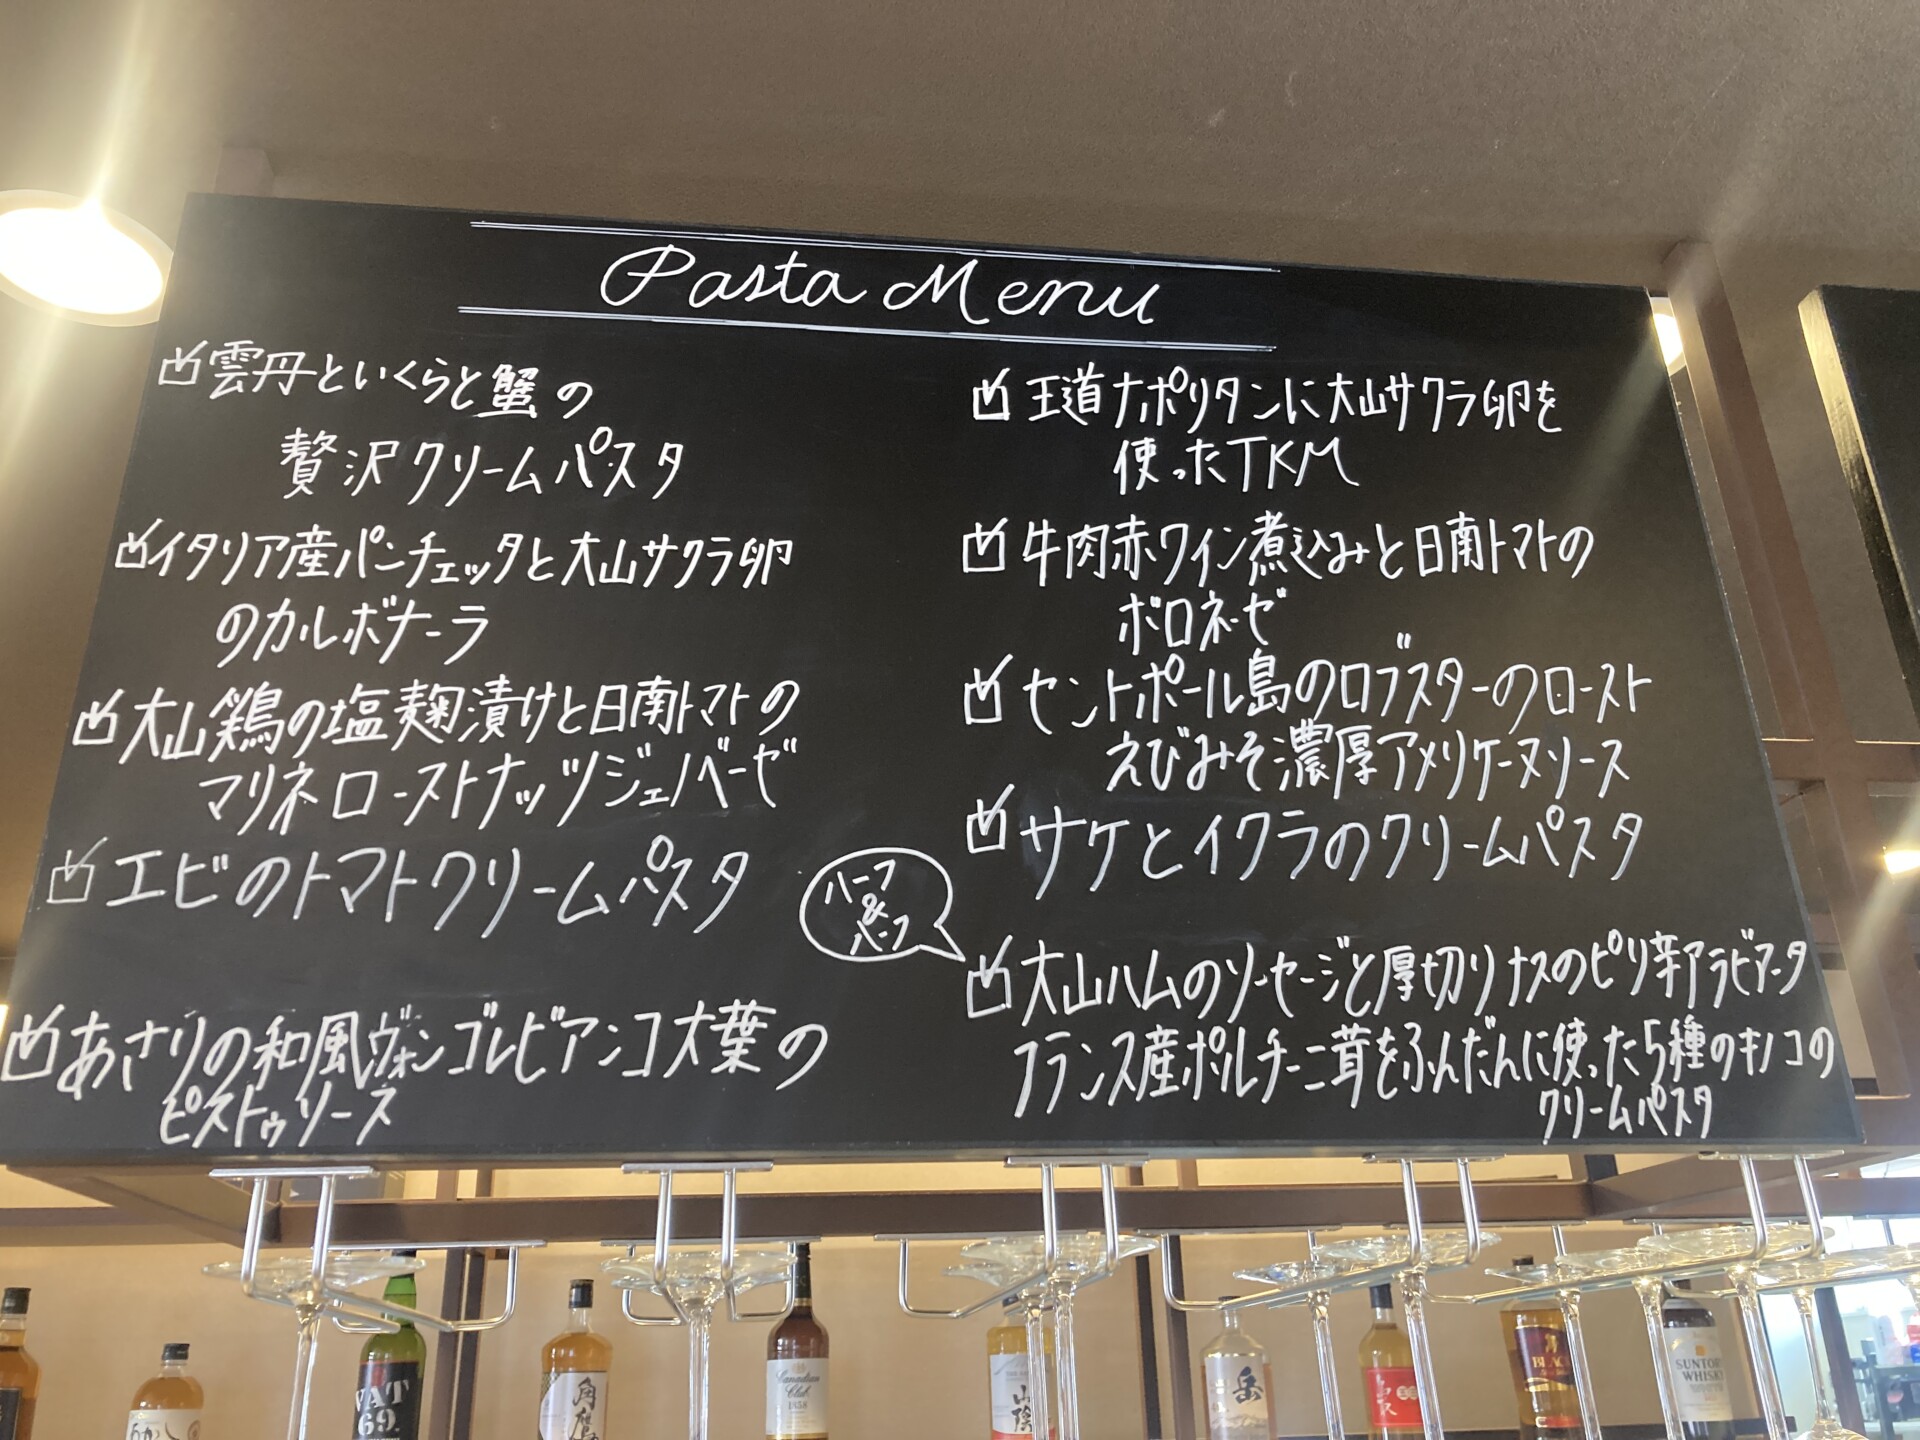 Pasta Menu
雲丹といくらと蟹の
贅沢クリームパスタ
イタリア産パンチェッタと大山サクラ卵
のカルボナーラ
大山鶏の塩麹漬けと日南トマトの
マリネローストナッツジェノベーゼ
エビのトマトクリームパスタ
あさりの和風ヴォンゴレビアンコ大葉の
ピストゥソース
王道ナポリタンに大山サクラ卵を
使ったTKM
牛肉赤ワイン煮込みと日南トマトの
ボロネーゼ
セントポール島のロブスターのロースト
えびみそ濃厚アメリケーヌソース
サケとイクラのクリームパスタ
ハーフ
&
ハーフ
大山ハムのソーセージと厚切りナスのピリ辛アラビアータ
フランス産ポルチーニ茸をふんだんに使った5種のキノコの
クリームパスタ
VAT
69
角
鷹
Canadian
Club
1858
山
陰
岳
BLACK
SUNTORY
WHISKY